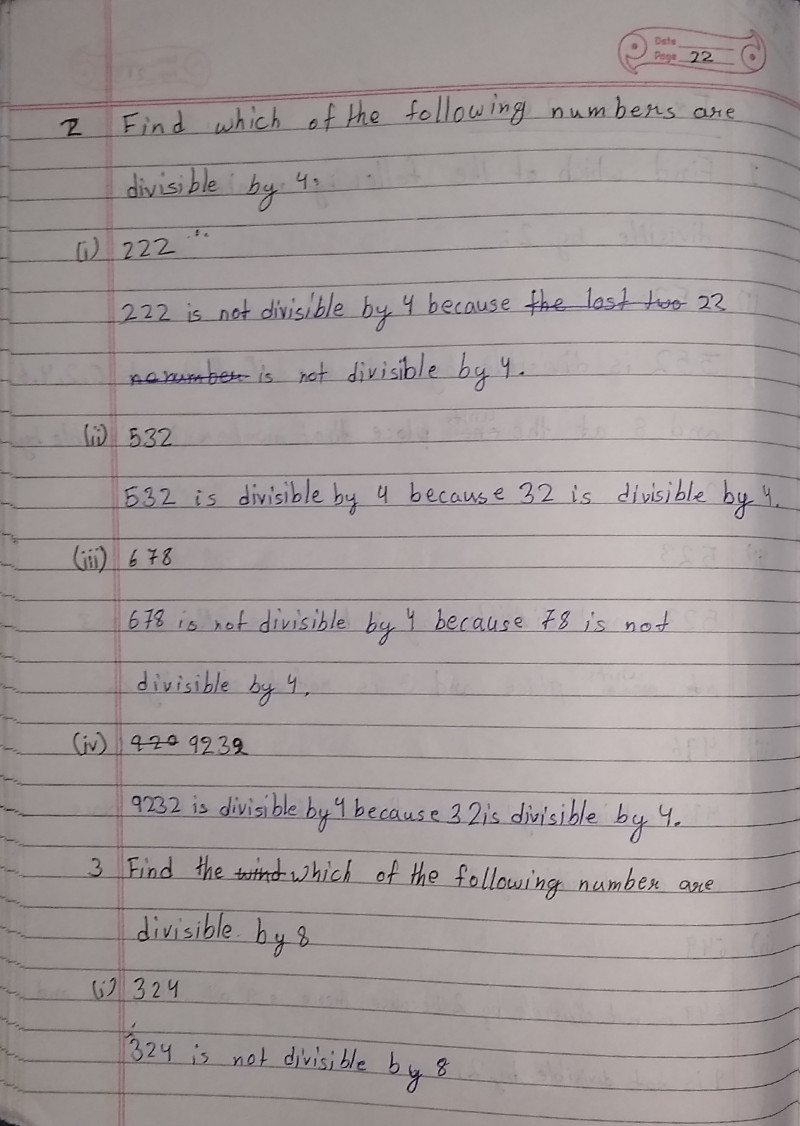 Date
Page 22
2 Find which of the following numbers are
divisible by 4:
(i) 222
222 is not divisible by 4 because the last two 22
no number is not divisible by 4.
(ii) 532
532 is divisible by 4 because 32 is divisible by 4.
(iii) 678
678 is not divisible by 4 because 78 is not
divisible by 4.
(iv) 920 9232
9232 is divisible by 4 because 32 is divisible by 4.
3 Find the wind which of the following number are
divisible by 8
(i) 324
324 is not divisible by 8